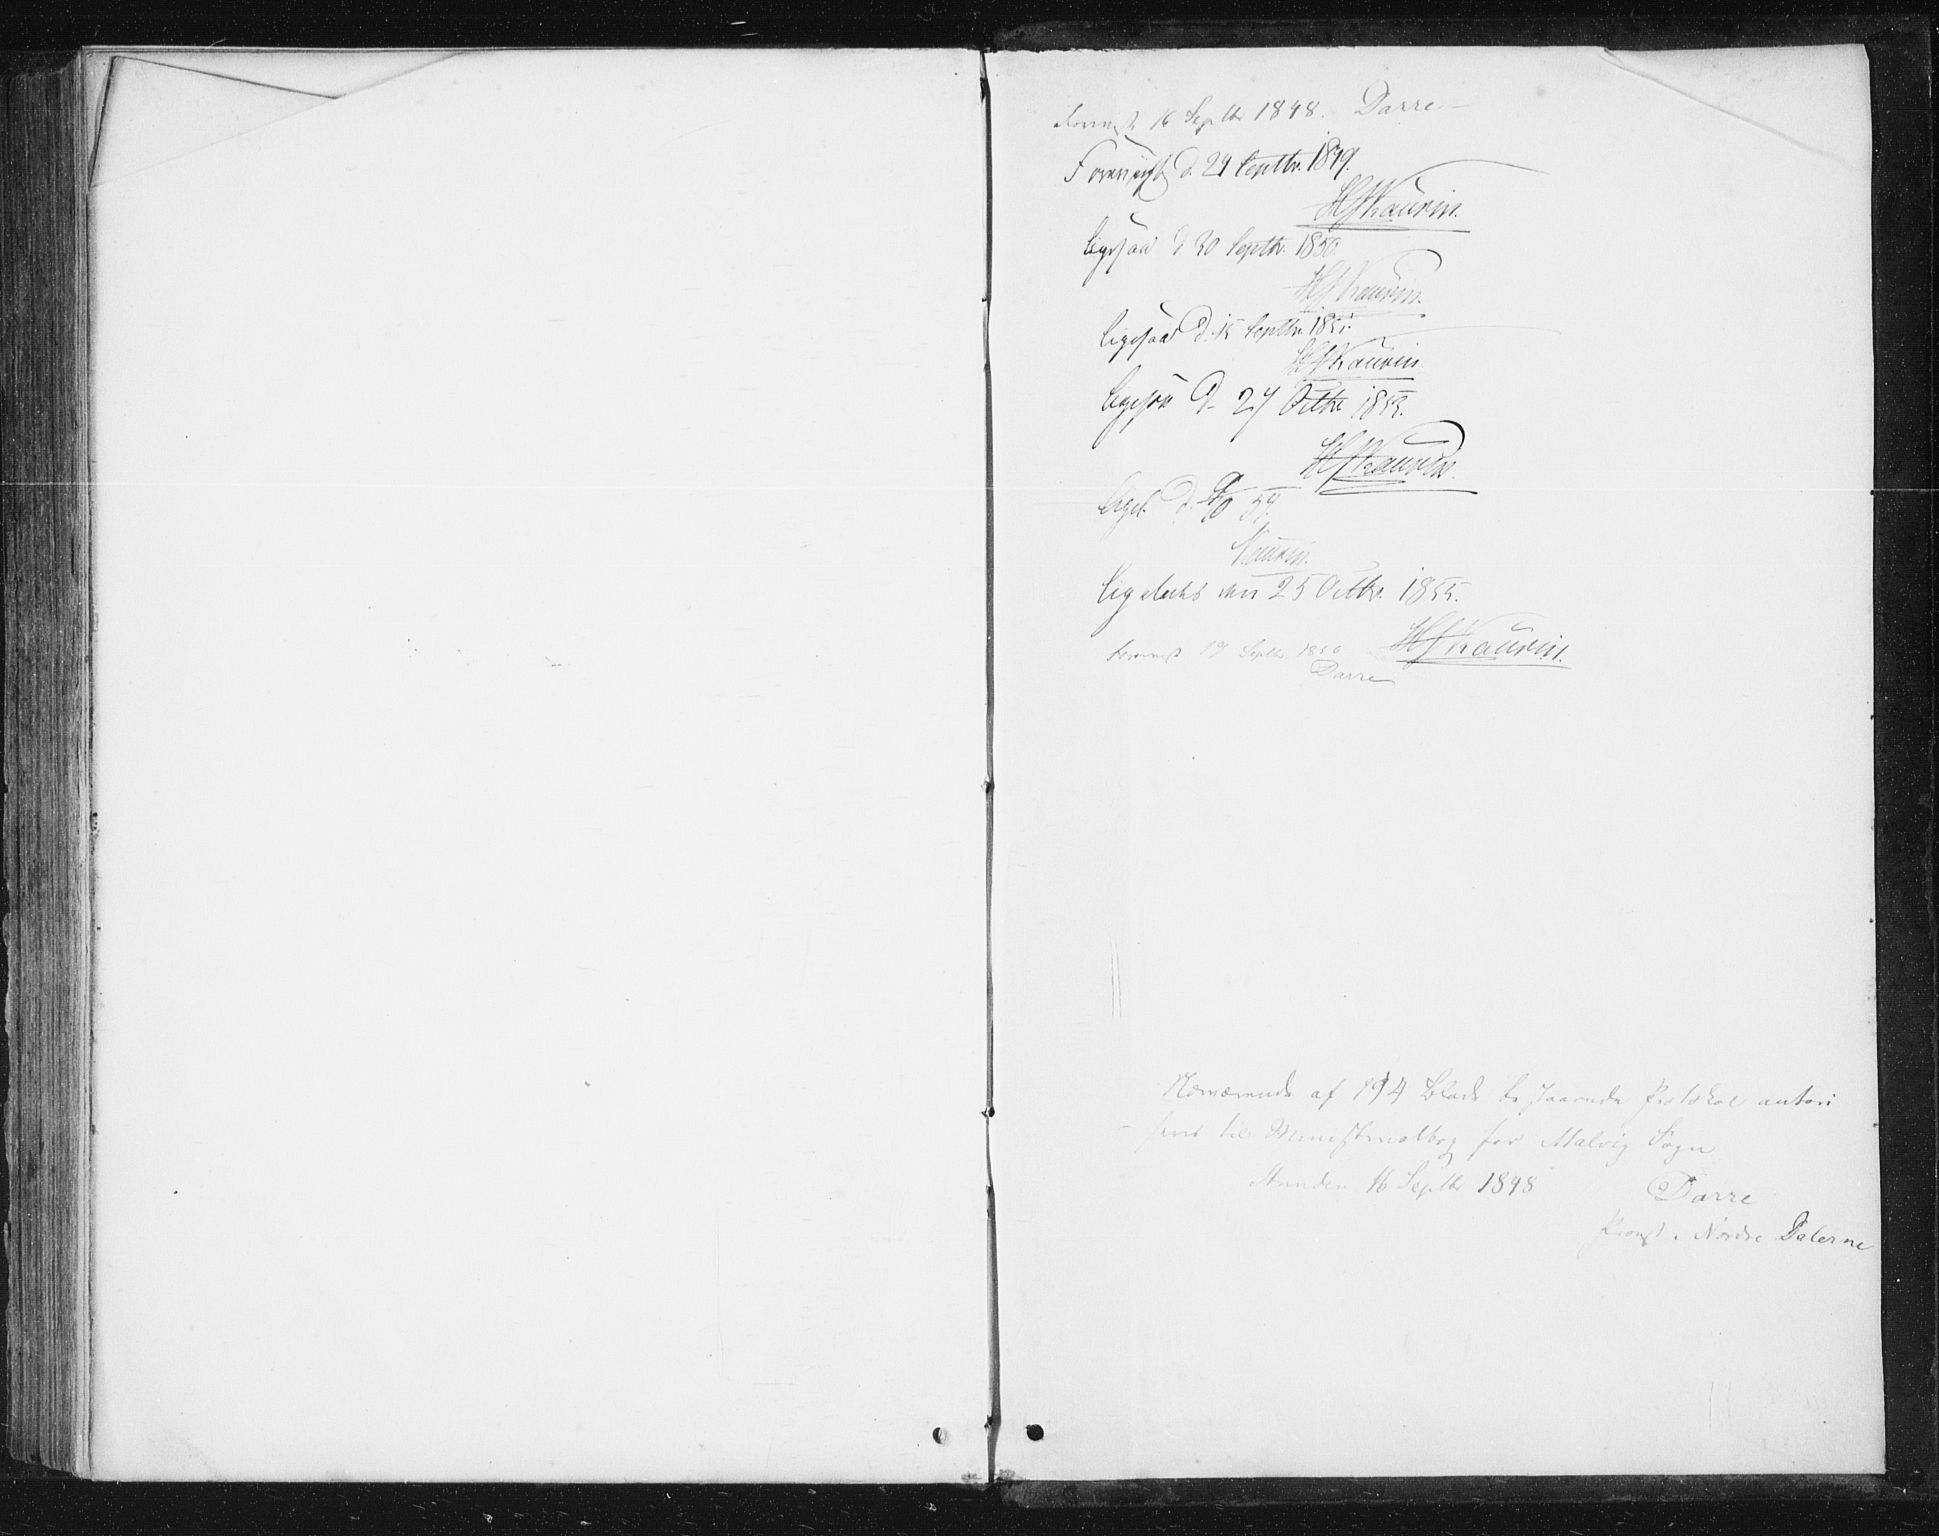 Forevist 16 Septbr 1848. Darre
Forevist d. 24 Septbr. 1849.
HJKaurin.
Ligesaa d 20 Septbr. 1850.
HJKaurin.
Ligesaa d. 15 Septbr. 1851.
HJKaurin
Ligesaa d. 27 Octbr 1853.
HJKaurin.
Liges. d. 54.
Kaurin.
Ligeledes den 25 Octbr. 1855.
HJKaurin.
Forevist 19 Septbr 1856
Darre
Nærværende af 194 Blade bestaaende Protokol autori
seres til Ministrialbog for Malvig Sogn
16 Septbr 1848
Darre
Provst i Nordre Dalerne